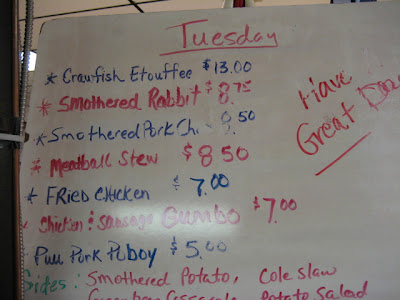 Tuesday
* Crawfish Etouffee $13.00
* Smothered Rabbit $8.75
* Smothered Pork Ch 8.50
* Meatball Stew $8.50
* Fried Chicken $7.00
* Chicken & Sausage Gumbo $7.00
Pull Pork Poboy $5.00
Sides: Smothered Potato, Cole Slaw
Casserole Potato Salad
Have
Great